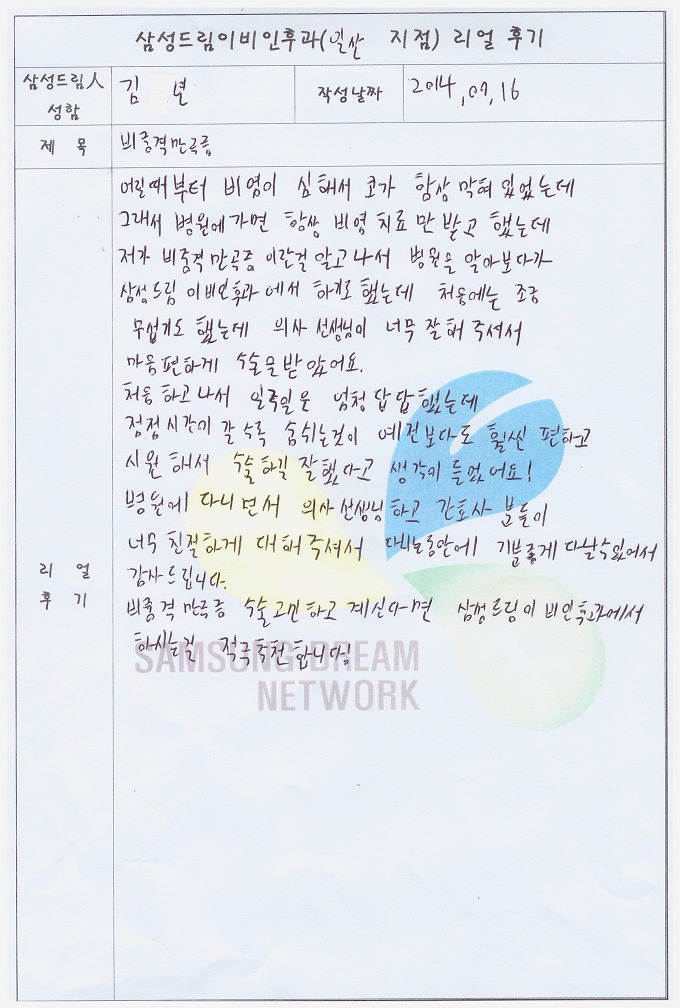 삼성드림이비인후과(일산 지점) 리얼 후기
삼성드림人 성함
김 년
작성날짜
2014.07.16
제 목
비중격만곡증
리 얼 후 기
어릴때부터 비염이 심해서 코가 항상 막혀 있었는데
그래서 병원에가면 항상 비염 치료만 받고 했는데
저가 비중격만곡증 이란걸 알고나서 병원을 알아보다가
삼성드림 이비인후과에서 하기로 했는데 처음에는 조금
무섭기도 했는데 의사 선생님이 너무 잘해 주셔서
마음편하게 수술을받았어요.
처음 하고나서 일주일은 엄청 답답했는데
점점시간이 갈수록 숨쉬는것이 예전보다도 훨씬 편하고
시원해서 수술하길 잘했다고 생각이 들었어요!
병원에 다니면서 의사선생님하고 간호사 분들이
너무 친절하게 대해주셔서 다니는동안에 기분좋게 다닐수있어서
감사드립니다.
비중격 만곡증 수술고민하고 계신다면 삼성드림이비인후과에서
하시는걸 적극추천합니다!
SAMSUNG DREAM
NETWORK